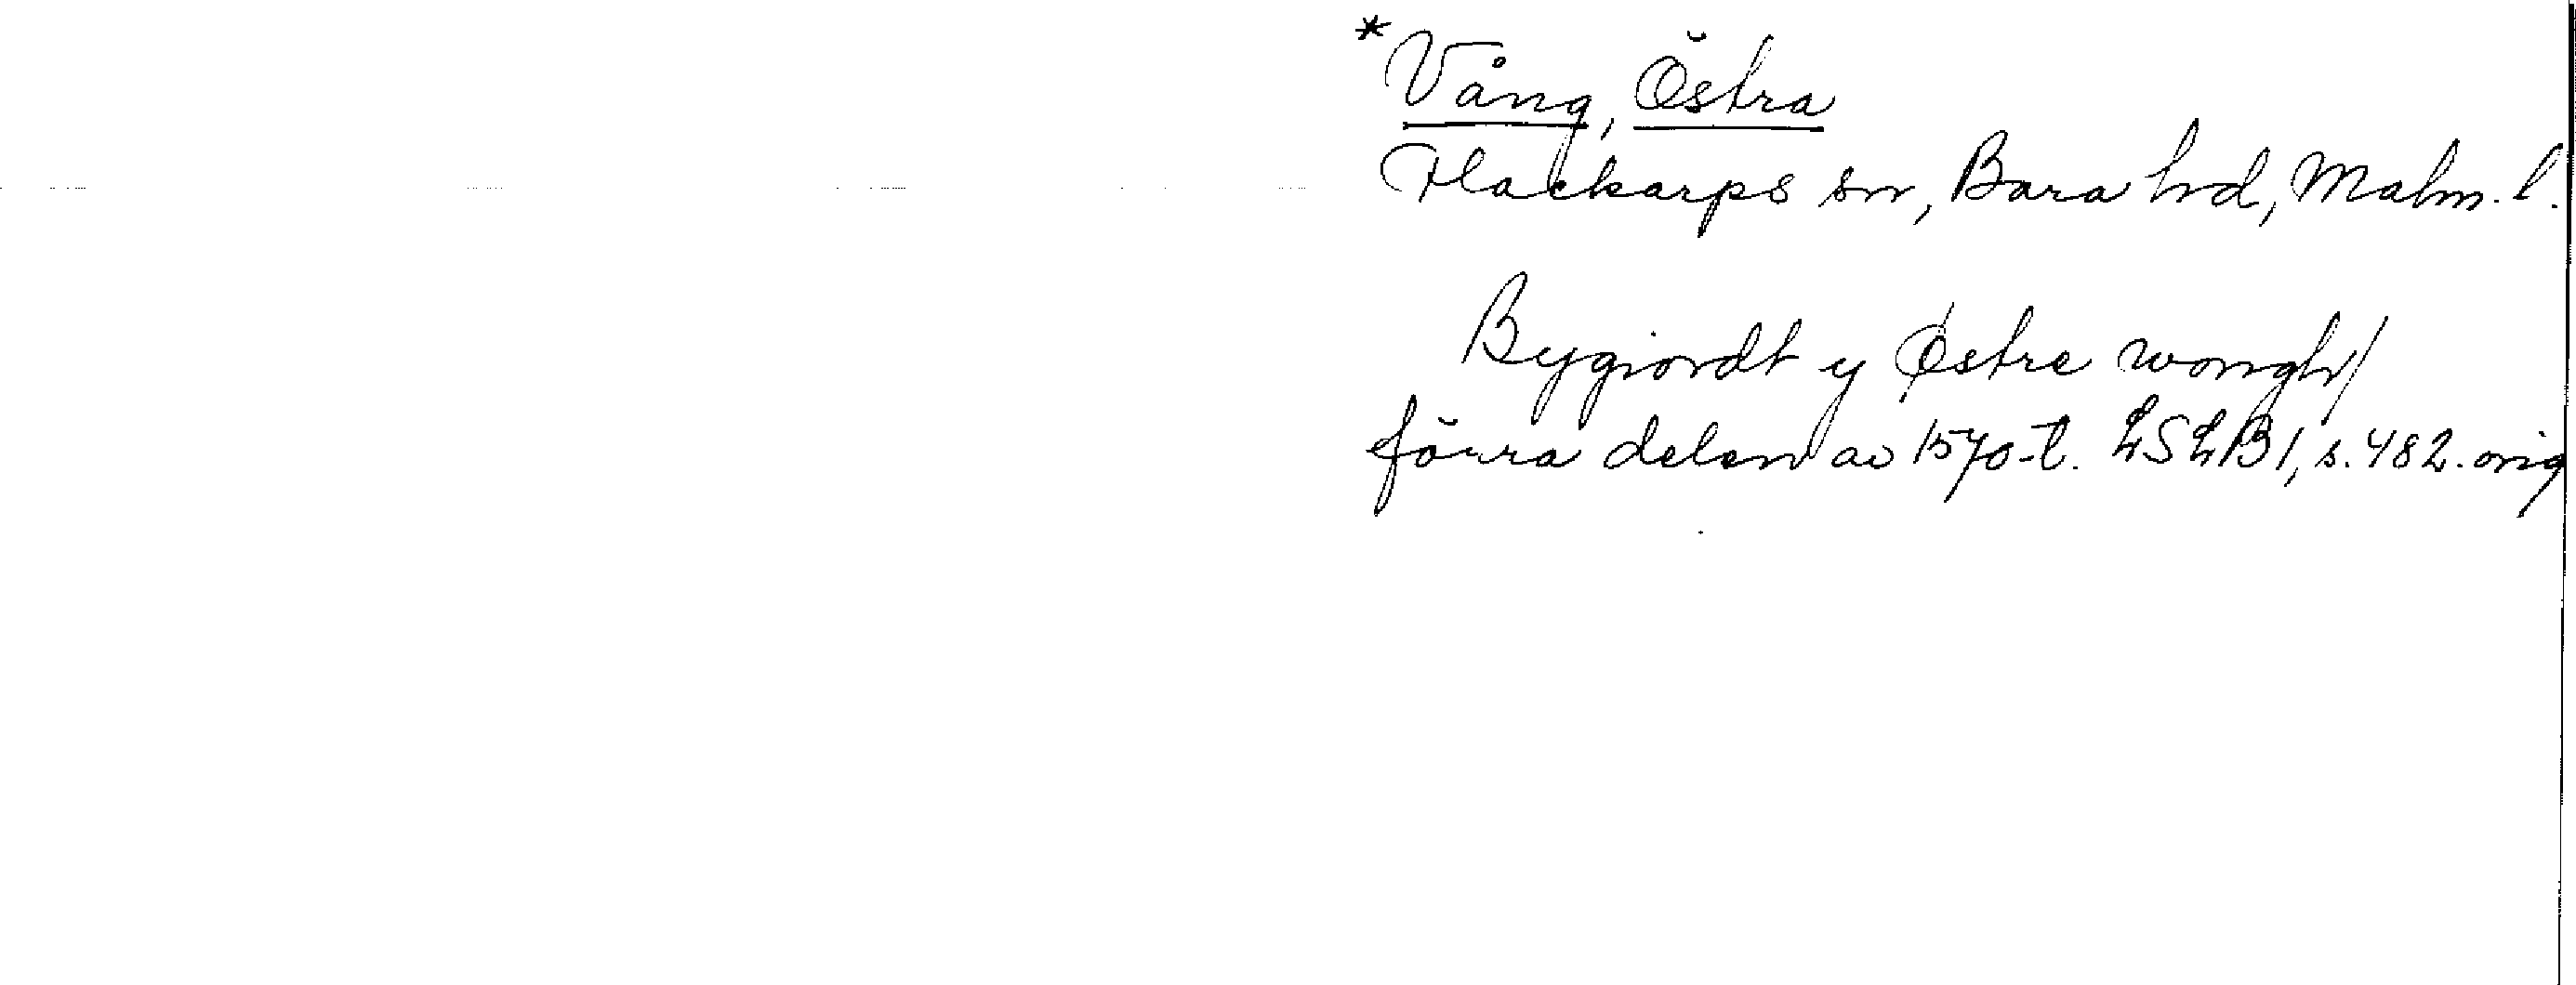 *Vång, Östra
Flackarps sn, Bara hd, Malm. l.
Bygiordt y Østre wongh/
förra delen av 1570-t. LSLB1, s. 482. orig